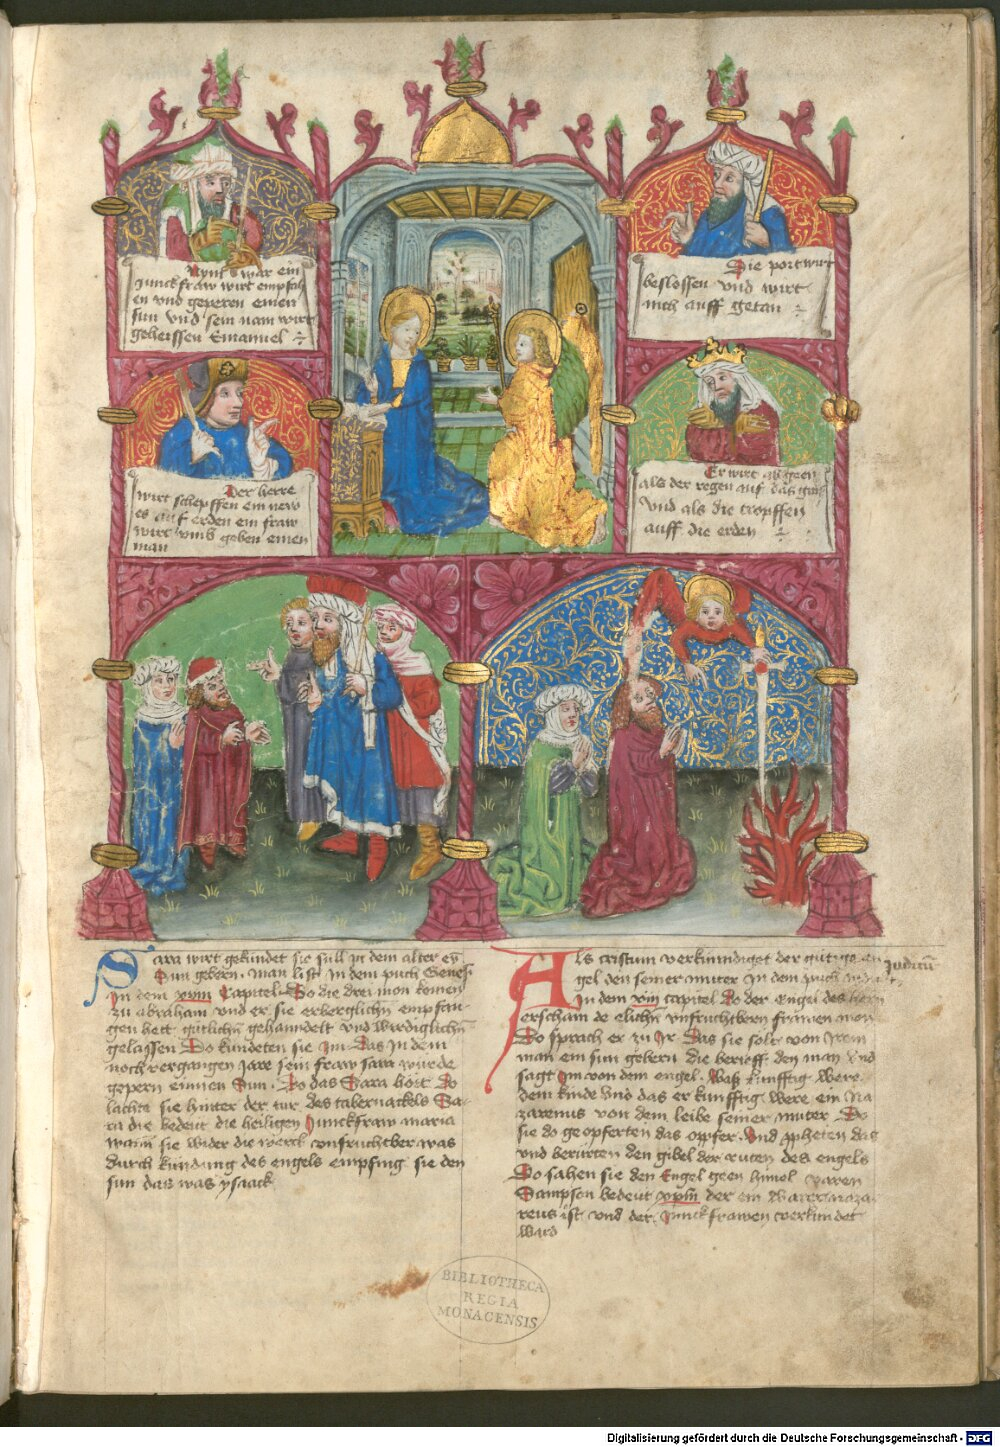 Nymt war ein
Junckfraw wirt empfah
en vnd geperen einen
sun vnd sein nam wirt
geheissen Emanuel
Die port wirt
beslossen vnd wirt
nich auff getan
Der herre
wirt schepffen ein news
es auf erden ein fraw
wirt vmb geben einen
man
Er wirt absteen
als der regen auf das
vnd als die tropffen
auff die erden
Sara wirt gekündet sie süll in dem alter ey
Sun gebern. man list in dem puch Genesi
In dem xviii Capitel. Do die drei mon komen
zu abraham vnd er sie erberglichn empfan
gen hett gütlichn gehanndelt vnd wirdiglichn
gelassen Do kündeten sie Im. Das In dem
noch vergangen Jare sein fraw sara wurde
gepern einnen Sun. Do das Sara hört Do
lachte sie hinter der tür des tabernackels Sa
ra die bedeut die heiligen Junckfraw maria
wann sie wider die werck vnfruchtber was
durch kündung des engels empfing sie den
sun das was ysaack
Als cristum verkunndiget der gütige en
gel den seiner muter In dem puch Judicũ
In dem xiii capitel Do der Engel des hern
erscham de elichn vnfruchtbern frawen
Do sprach er zu Ir Das sie solt von Irem
man ein sun gebern die berieff den man vnd
sagt Im von dem engel. Waß künfftig were
dem kinde Vnd das er künfftig were ein Na
zarenus von dem leibe seiner muter Do
sie do geopferten das opfer. Vnd
vnd berürten den gibel der ruten des engels
Do sahen sie den Engel geen himel varen
Sampson bedeut der ein
reus ist vnd der Junckfrawen verkündet
ward
BIBLIOTHECA
REGIA
MONACENSIS
Digitalisierung gefördert durch die Deutsche Forschungsgemeinschaft - DFG